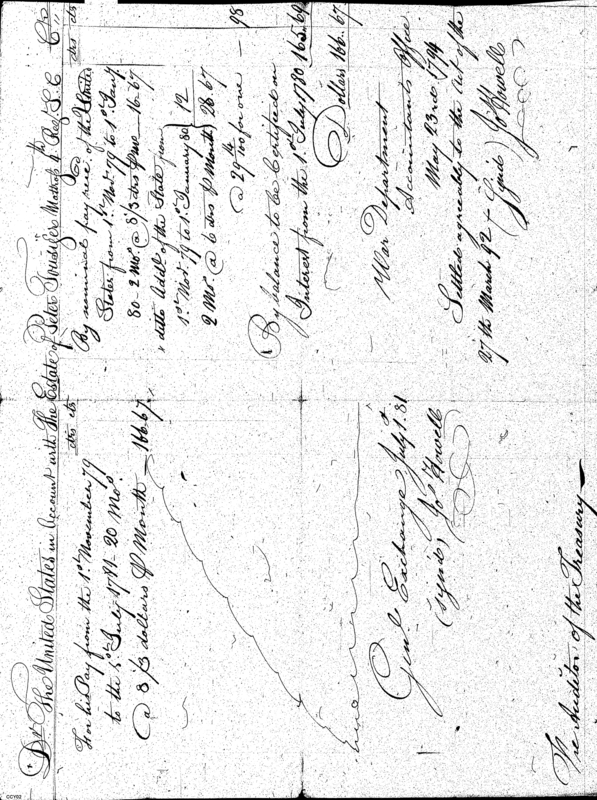 Dr. The United States in Account with the Estate of Peter Fousilers Matross 4th Regt. S. C Cr.
drs cts
For his Pay from the 1st November 79
to the 1st July 1781 - 20 Mos.
@ 8 1/3 dollars P Month — 166.67
Genl. Exchange July 1. 81
(signd) Jos. Howell
The Auditor of the Treasury —
drs cts
By nominal pay recd. of the United
States from 1st Novr. 79 to 1st Jany
80 - 2 Mos. @ 8 1/3 drs P mo — 16.67
ditto Addl. of the State from
1st Novr. 79 to 1st January 80 } 12
2 Mos. @ 6 drs P Month } 28.67
@ 29 for one — 98
By balance to be Certified on
Interest from the 1st July 1780 165.69
Dollars 166.67
War Department
Accountants Office
May 23rd 1794
Settled agreeably to the Act of the
27th March 92 (Signd) Jos. Howell
CCY02